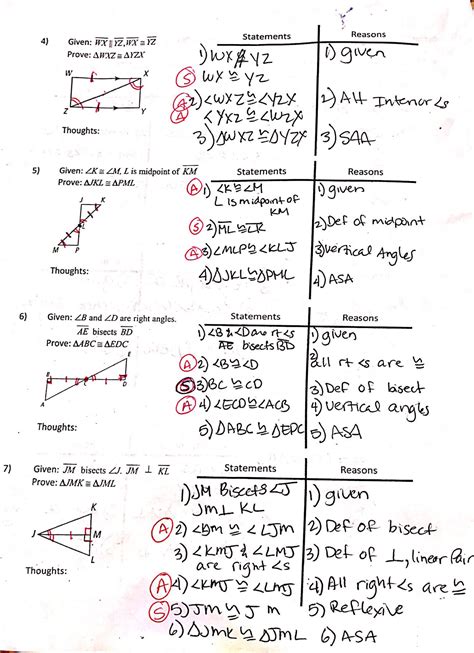 4) Given: WX ∥ YZ, WX ≅ YZ
Prove: ΔWXZ ≅ ΔYZX
W X
Z Y
Thoughts:
Statements Reasons
1) WX ∥ YZ 1) given
S WX ≅ YZ
A 2) <WXZ ≅ <YZX 2) Alt Interior <s
A <YXZ ≅ <WZX
3) ΔWXZ ≅ ΔYZX 3) SAA
5) Given: ∠K ≅ ∠M, L is midpoint of KM
Prove: ΔJKL ≅ ΔPML
J K
L
M P
Thoughts:
Statements Reasons
A 1) <K ≅ <M 1) given
L is midpoint of
KM
S 2) ML ≅ LK 2) Def of midpoint
A 3) <MLP ≅ <KLJ 3) vertical Angles
4) ΔJKL ≅ ΔPML 4) ASA
6) Given: ∠B and ∠D are right angles.
AE bisects BD
Prove: ΔABC ≅ ΔEDC
E
A
Thoughts:
Statements Reasons
1) <B & <D are rt <s 1) given
AE bisects BD
A 2) <B ≅ <D 2) all rt <s are ≅
S 3) BC ≅ CD 3) Def of bisect
A 4) <ECD ≅ <ACB 4) vertical angles
5) ΔABC ≅ ΔEDC 5) ASA
7) Given: JM bisects ∠J. JM ⊥ KL
Prove: ΔJMK ≅ ΔJML
K
J M
L
Thoughts:
Statements Reasons
1) JM Bisects <J 1) given
JM ⊥ KL
A 2) ≅ <LJM 2) Def of bisect
3) <KMJ & <LMJ 3) Def of ⊥, linear Pair
are right <s
A 4) <KMJ ≅ <LMJ 4) All right <s are ≅
S 5) JM ≅ JM 5) Reflexive
6) ΔJMK ≅ ΔJML 6) ASA